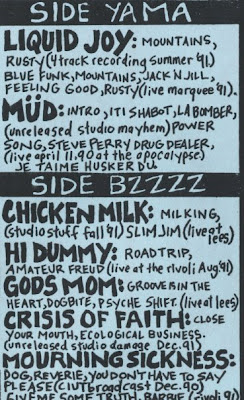 SIDE YAMA
LIQUID JOY: MOUNTAINS,
RUSTY (4 track recording summer '91)
BLUE FUNK, MOUNTAINS, JACK N JILL,
FEELING GOOD, RUSTY (live marquee 91).
MÜD: INTRO, ITI SHABOT, LA BOMBER,
(unreleased studio mayhem) POWER
SONG, STEVE PERRY DRUG DEALER,
(live april 11.90 at the apocolypse)
JE TAIME HUSKER DU
SIDE BZZZZ
CHICKEN MILK: MILKING,
(studio stuff fall 91) SLIM JIM (live at lees)
HI DUMMY: ROADTRIP,
AMATEUR FREUD (live at the rivoli Aug. 91)
GODS MOM: GROOVE IS IN THE
HEART, DOGBITE, PSYCHE SHIFT. (live at lees)
CRISIS OF FAITH: CLOSE
YOUR MOUTH, ECOLOGICAL BUSINESS.
(unreleased studio damage Dec. 91)
MOURNING SICKNESS:
DOG, REVERIE, YOU DON'T HAVE TO SAY
PLEASE (CIUT broadcast Dec. 90)
GIVE ME SOME TRUTH, BARBIE (rivoli 91)